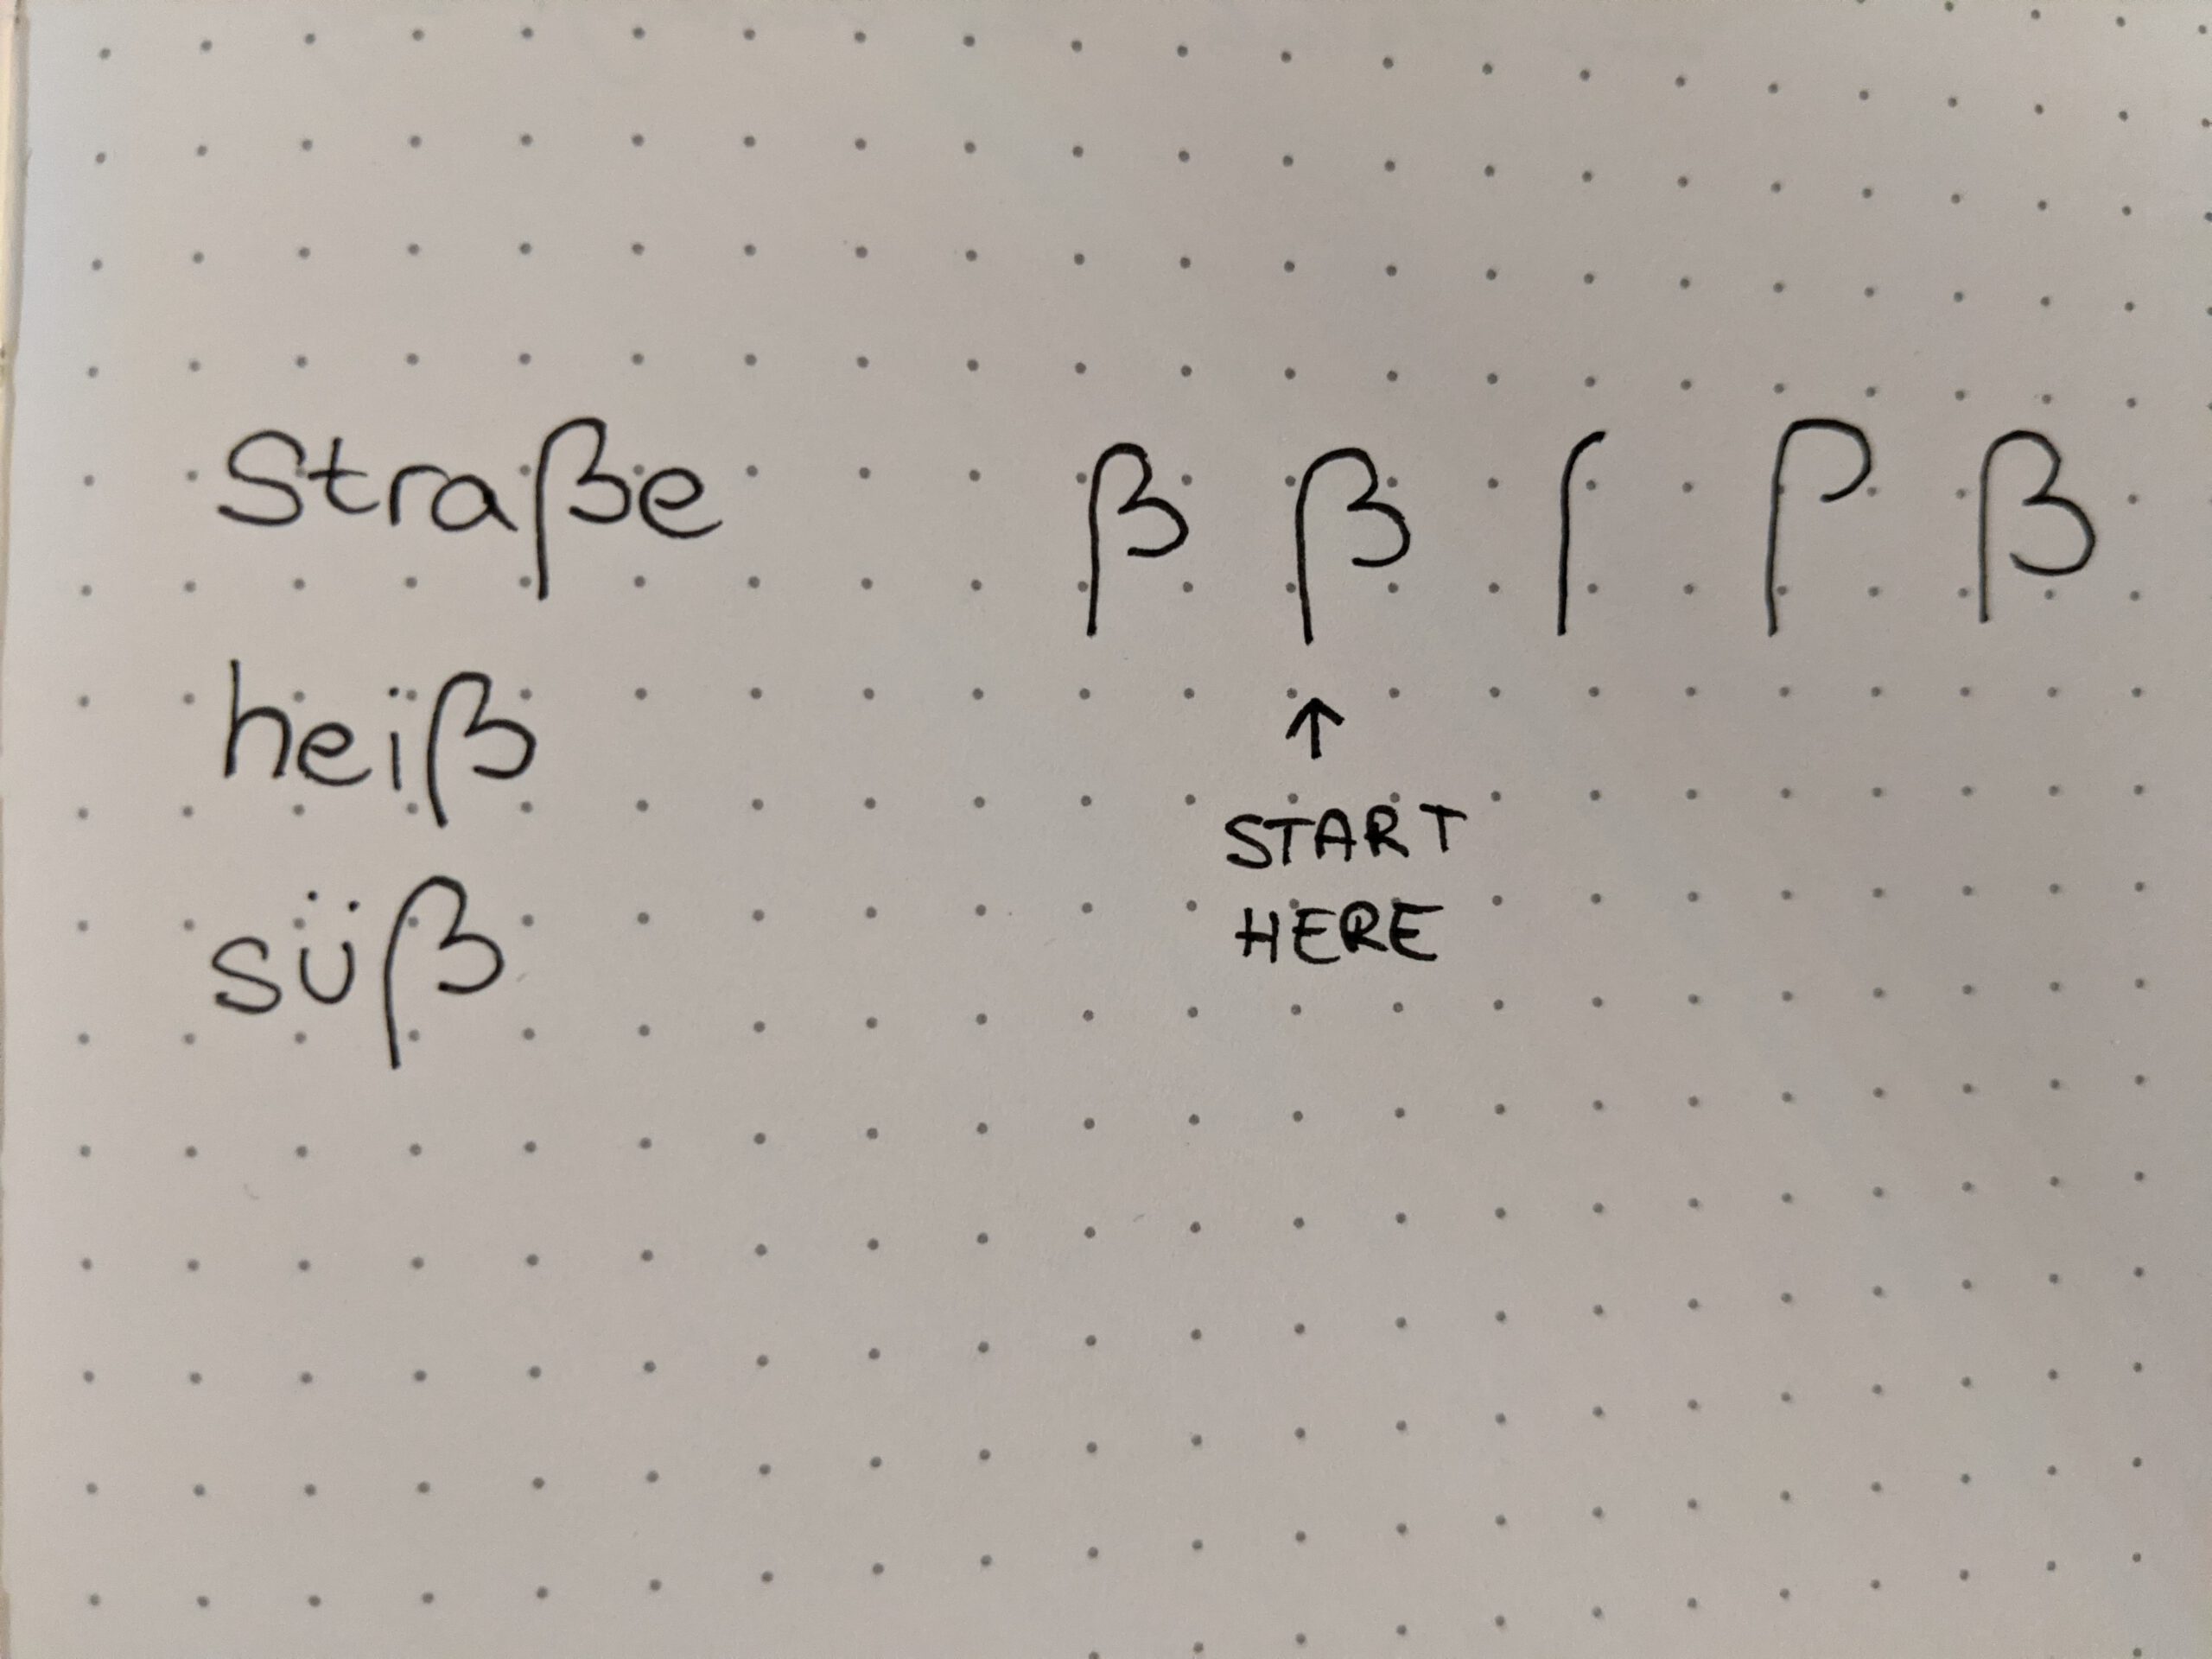 Straße
heiß
süß
ß ß ſ ρ ß
↑
START
HERE